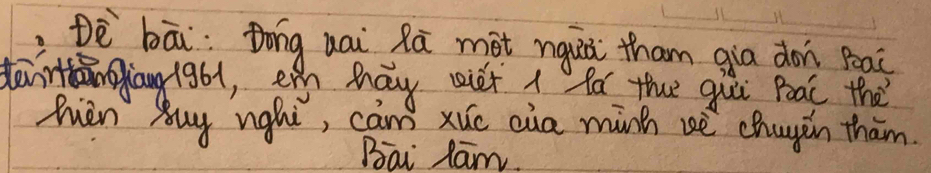 Đề bài: Đóng vai là một người tham gia đón Bác
đến Hà Giang 1961, em hãy viết 1 lá thư gửi Bác thể
hiện suy nghĩ, cảm xúc của mình về chuyến thăm.
Bài làm.